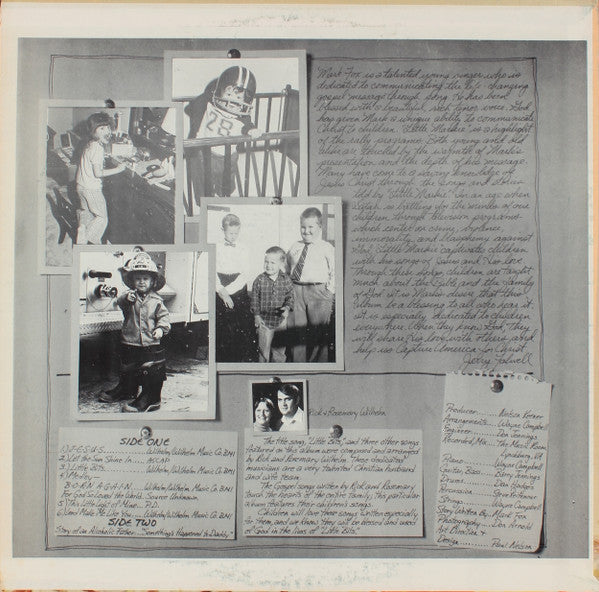 Mark Fox is a talented young singer who is
dedicated to communicating the life-changing
gospel message through song. He has been
blessed with a beautiful, rich tenor voice. God
has given Mark a unique ability to communicate
Christ to children. "Little Markie" is a highlight
of the early programs. Both young and old
alike are blessed by the warmth of Mark's
presentation and the depth of his message.
Many have come to a saving knowledge of
Jesus Christ through the songs and stories
told by "Little Markie". In an age when
Satan is battling for the minds of our
children through television programs
which center on crime, violence,
immorality, and blasphemy against
God, "Little Markie" captivates children
with his songs of Jesus and His love.
Through these songs, children are taught
much about the Bible and the family
of God. It is Mark's desire that this
album be a blessing to all who hear it.
It is especially dedicated to children
everywhere. When they know God, they
will share His love with others and
help us Capture America for Christ.
Jerry Falwell
28
Rick & Rosemary Wilhelm
SIDE ONE
1) J-E-S-U-S Wilhelm, Wilhelm Music Co. BMI
2) Let the Sun Shine In ASCAP
3) Little Bits Wilhelm, Wilhelm Music Co. BMI
4) Medley
B-O-R-N A-G-A-I-N Wilhelm, Wilhelm Music Co. BMI
For God So Loved the World Source Unknown
5) This Little Light of Mine P.D.
6) God Made Me Like You Wilhelm, Wilhelm Music Co. BMI
SIDE TWO
Story of an Alcoholic Father "Something's Happened to Daddy"
The title song, "Little Bits," and three other songs
featured on this album were composed and arranged
by Rick and Rosemary Wilhelm. These dedicated
musicians are a very talented Christian husband
and wife team.
The Gospel songs written by Rick and Rosemary
touch the hearts of the entire family; this particular
album features their children's songs.
Children will love these songs written especially
for them, and we know they will be blessed and used
of God in the lives of "Little Bits."
Producer Nelson Keener
Arrangements Wayne Campbell
Engineer Don Jennings
Recorded, Mix The Music Room
Lynchburg, VA
Piano Wayne Campbell
Guitar, Bass Barry Jennings
Drums Dan Badgley
Percussion Steve Kershner
Strings Wayne Campbell
Story Written By Mark Fox
Photography Don Arnold
Art Direction &
Design Paul Nelson